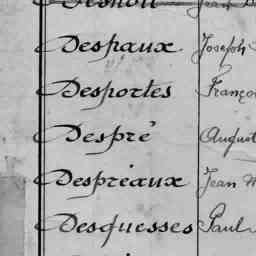 Despaux Joseph
Desportes Franço
Despré August
Despréaux Jean M
Desquesses Paul